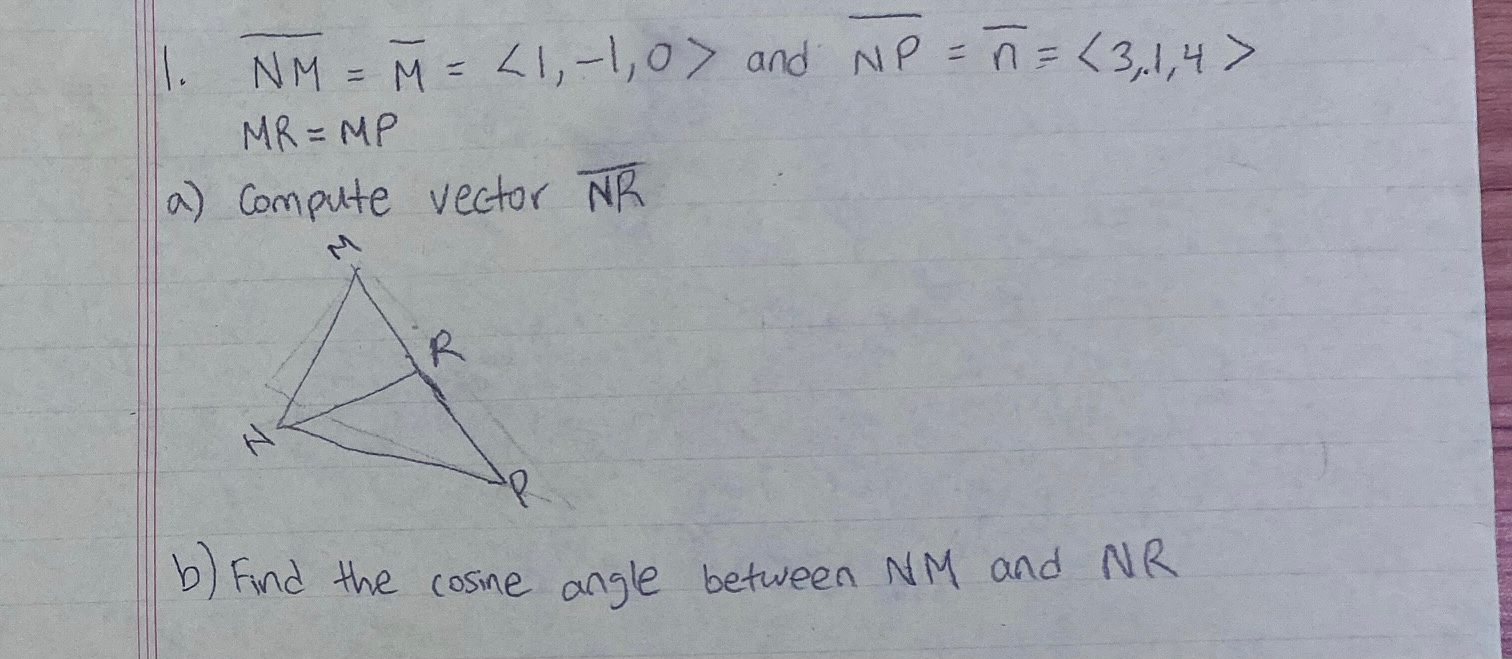 1. NM = M = <1,-1,0> and NP = n = <3,1,4>
MR = MP
a) Compute vector NR
M
R
N
P
b) Find the cosine angle between NM and NR